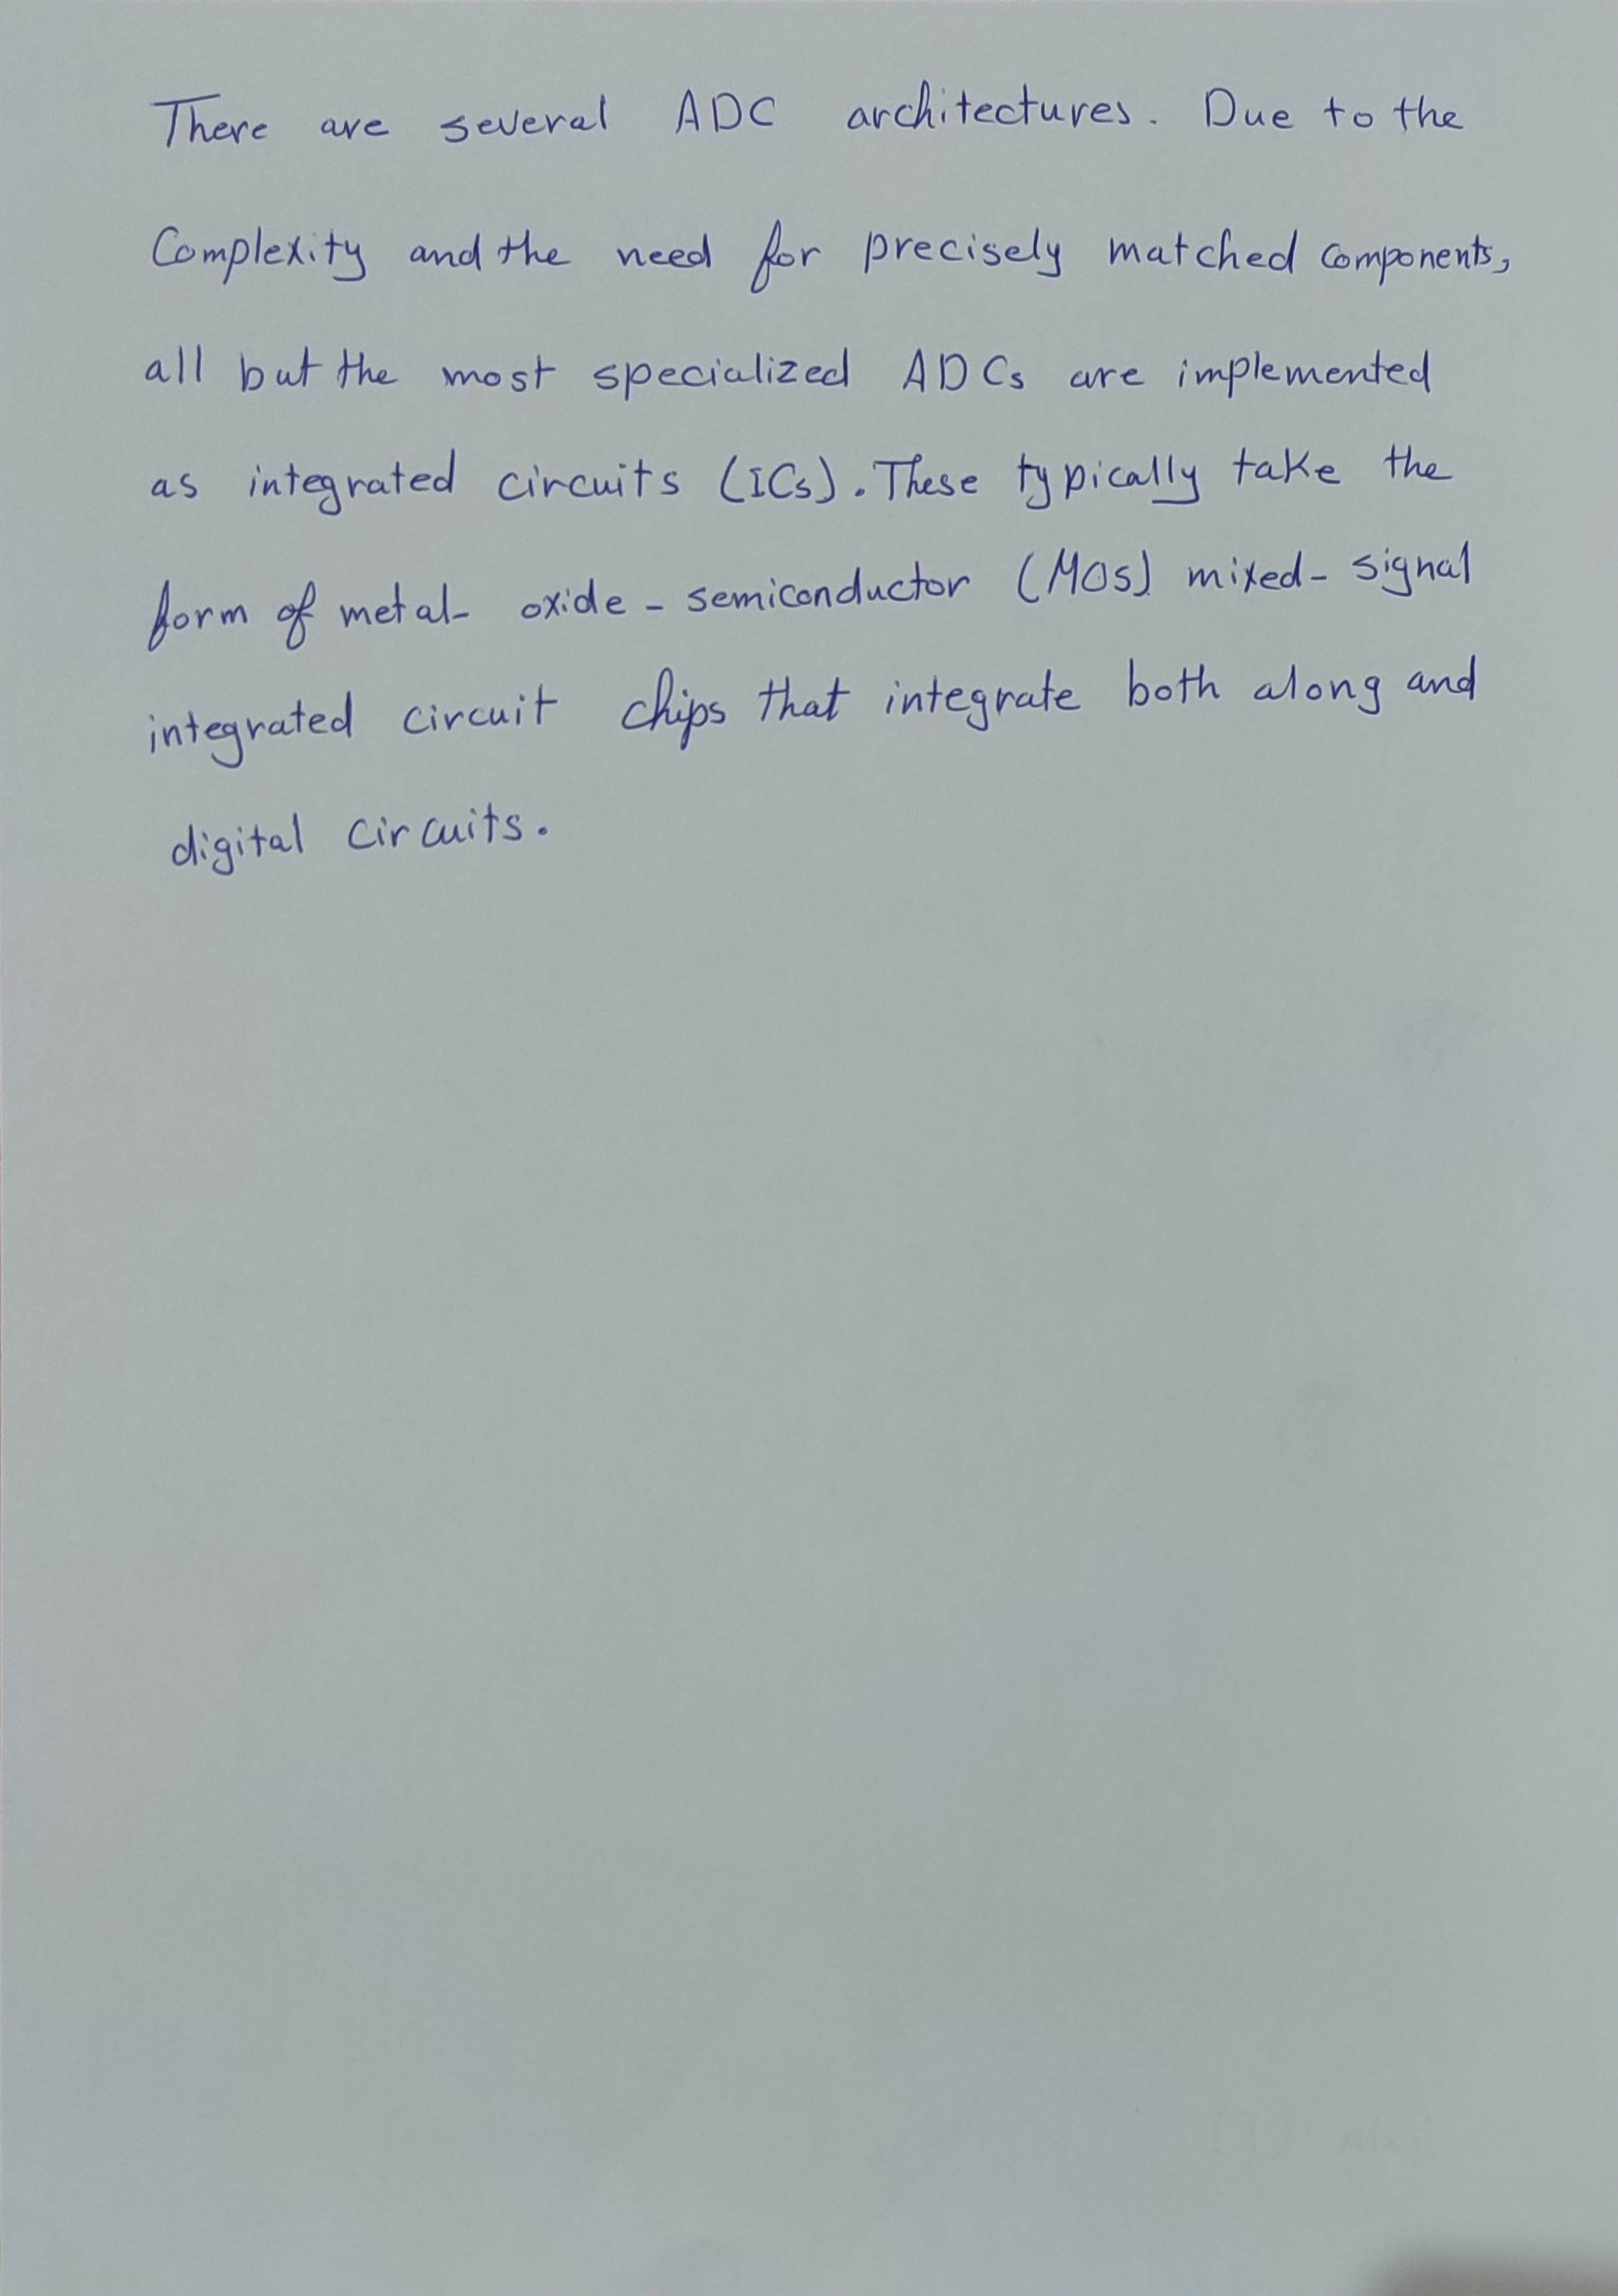 There are several ADC architectures. Due to the
Complexity and the need for precisely matched components,
all but the most specialized ADCs are implemented
as integrated circuits (ICs). These typically take the
form of metal- oxide - semiconductor (MOS) mixed- signal
integrated circuit chips that integrate both along and
digital circuits.